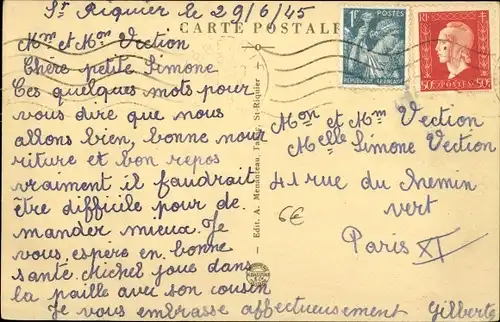 St Riquier le 29/6/45
CARTE POSTALE
Mme et Mon Vection
Chère petite Simone
Ces quelques mots pour
vous dire que nous
allons bien, bonne nour
riture et bon repos
vraiment il faudrait
être difficile pour de
mander mieux. Je
vous espère en bonne
santé. Michel joue dans
la paille avec son cousin
Je vous embrasse affectueusement Gilberte
Edit. A. St-Riquier
1F POSTES
RF 50c 50c
Mon et Mm Vection
Melle Simone Vection
41 rue du Chemin
vert
Paris XI
6€